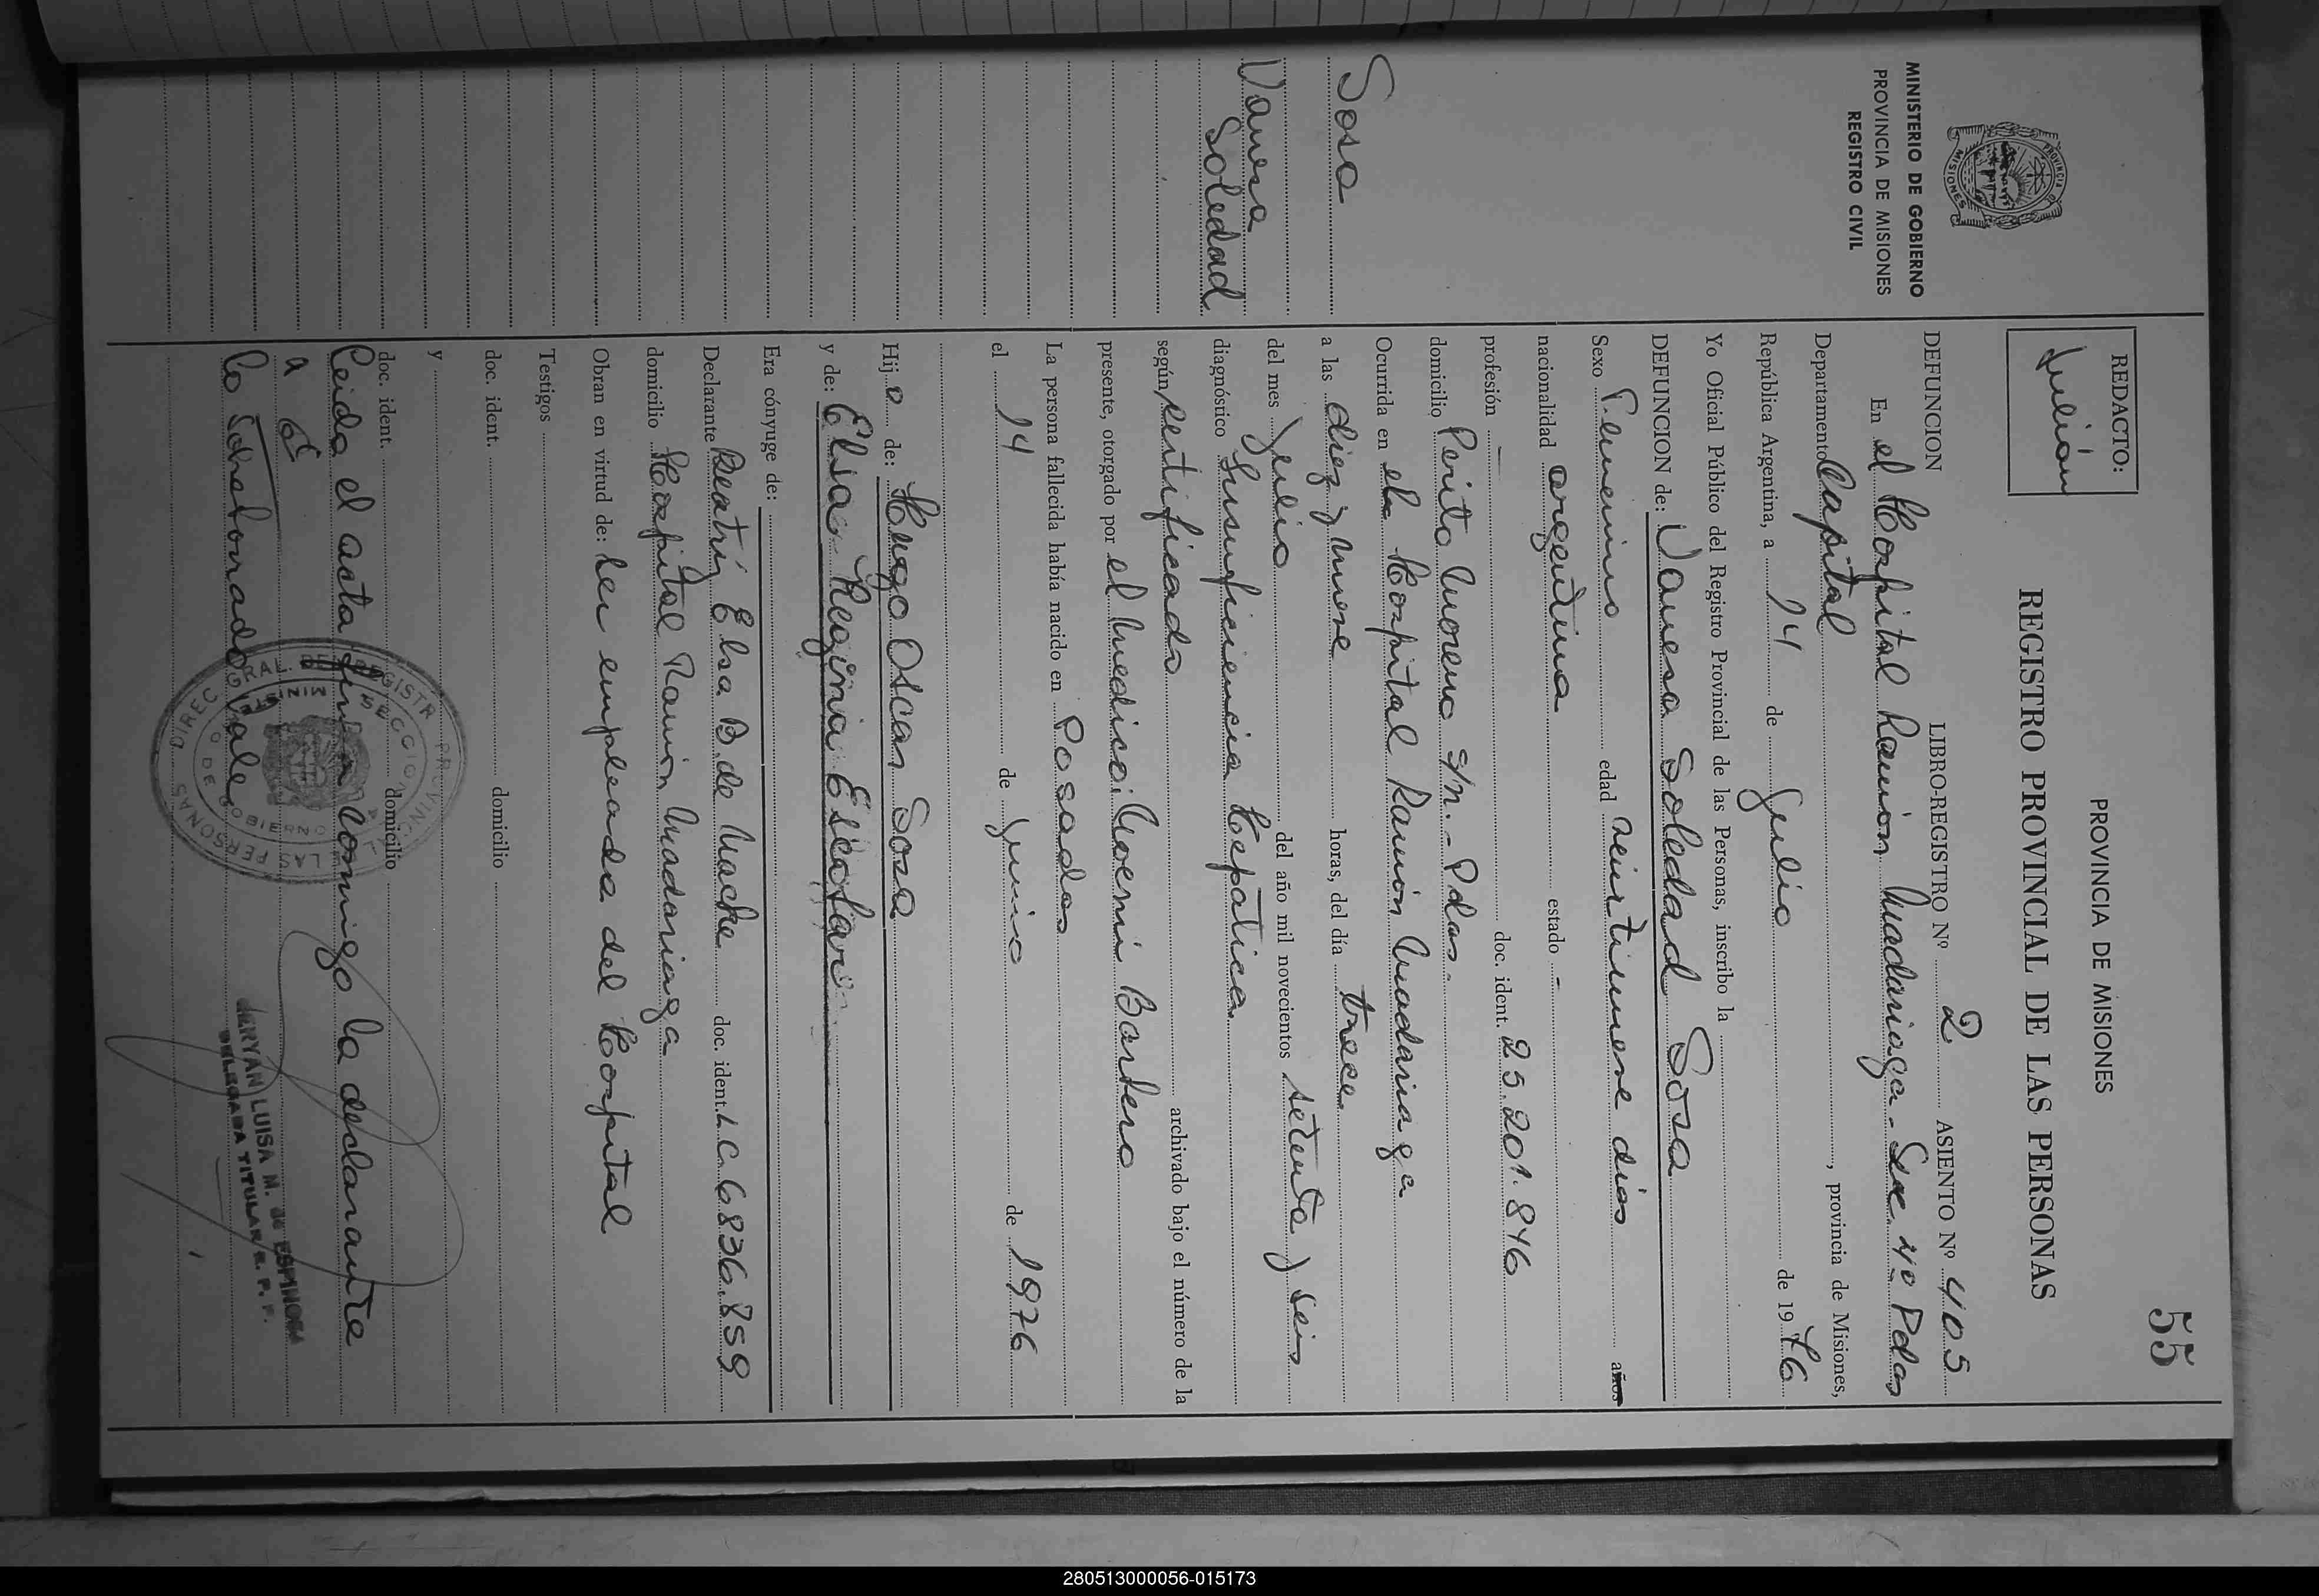 55
PROVINCIA DE MISIONES
REGISTRO PROVINCIAL DE LAS PERSONAS
REDACTO:
Julión
MINISTERIO DE GOBIERNO
PROVINCIA DE MISIONES
REGISTRO CIVIL
Sosa
Vanesa
Soledad
DEFUNCION LIBRO-REGISTRO Nº 2 ASIENTO Nº 405
En el Hospital Ramón Madariaga - Sec 4º Pdas
Departamento Capital, provincia de Misiones,
República Argentina, a 14 de Julio de 1976
Yo Oficial Público del Registro Provincial de las Personas, inscribo la
DEFUNCION de: Vanesa Soledad Sosa
Sexo Femenino edad veintinueve días años
nacionalidad argentina estado -
profesión - doc. ident. 25.201.846
domicilio Perito Moreno s/n. - Pdas.
Ocurrida en el Hospital Ramón Madariaga
a las diez y nueve horas, del día trece
del mes Julio del año mil novecientos setenta y seis
diagnóstico Insuficiencia Hepática
según certificado archivado bajo el número de la
presente, otorgado por el medico: Noemi Bordero
La persona fallecida había nacido en Posadas
el 14 de Junio de 1976
Hij a de: Hugo Oscar Sosa
y de: Elsa Regina Escobar
Era cónyuge de:
Declarante Beatríz Elsa B. de Mache doc. ident. L.C. 6836.859
domicilio Hospital Ramón Madariaga
Obran en virtud de: Ser empleada del Hospital
Testigos
doc. ident. domicilio
y
doc. ident. domicilio
Leida el acta firma conmigo la declarante
lo sobreborrado Vale
DIREC. GRAL. DE REGISTR. PROVINCIAL DE LAS PERSONAS
MINIS. DE GOBIERNO
SECCION 4
MERYAN LUISA M. de ESPINOSA
DELEGADA TITULAR R. P. P.
280513000056-015173